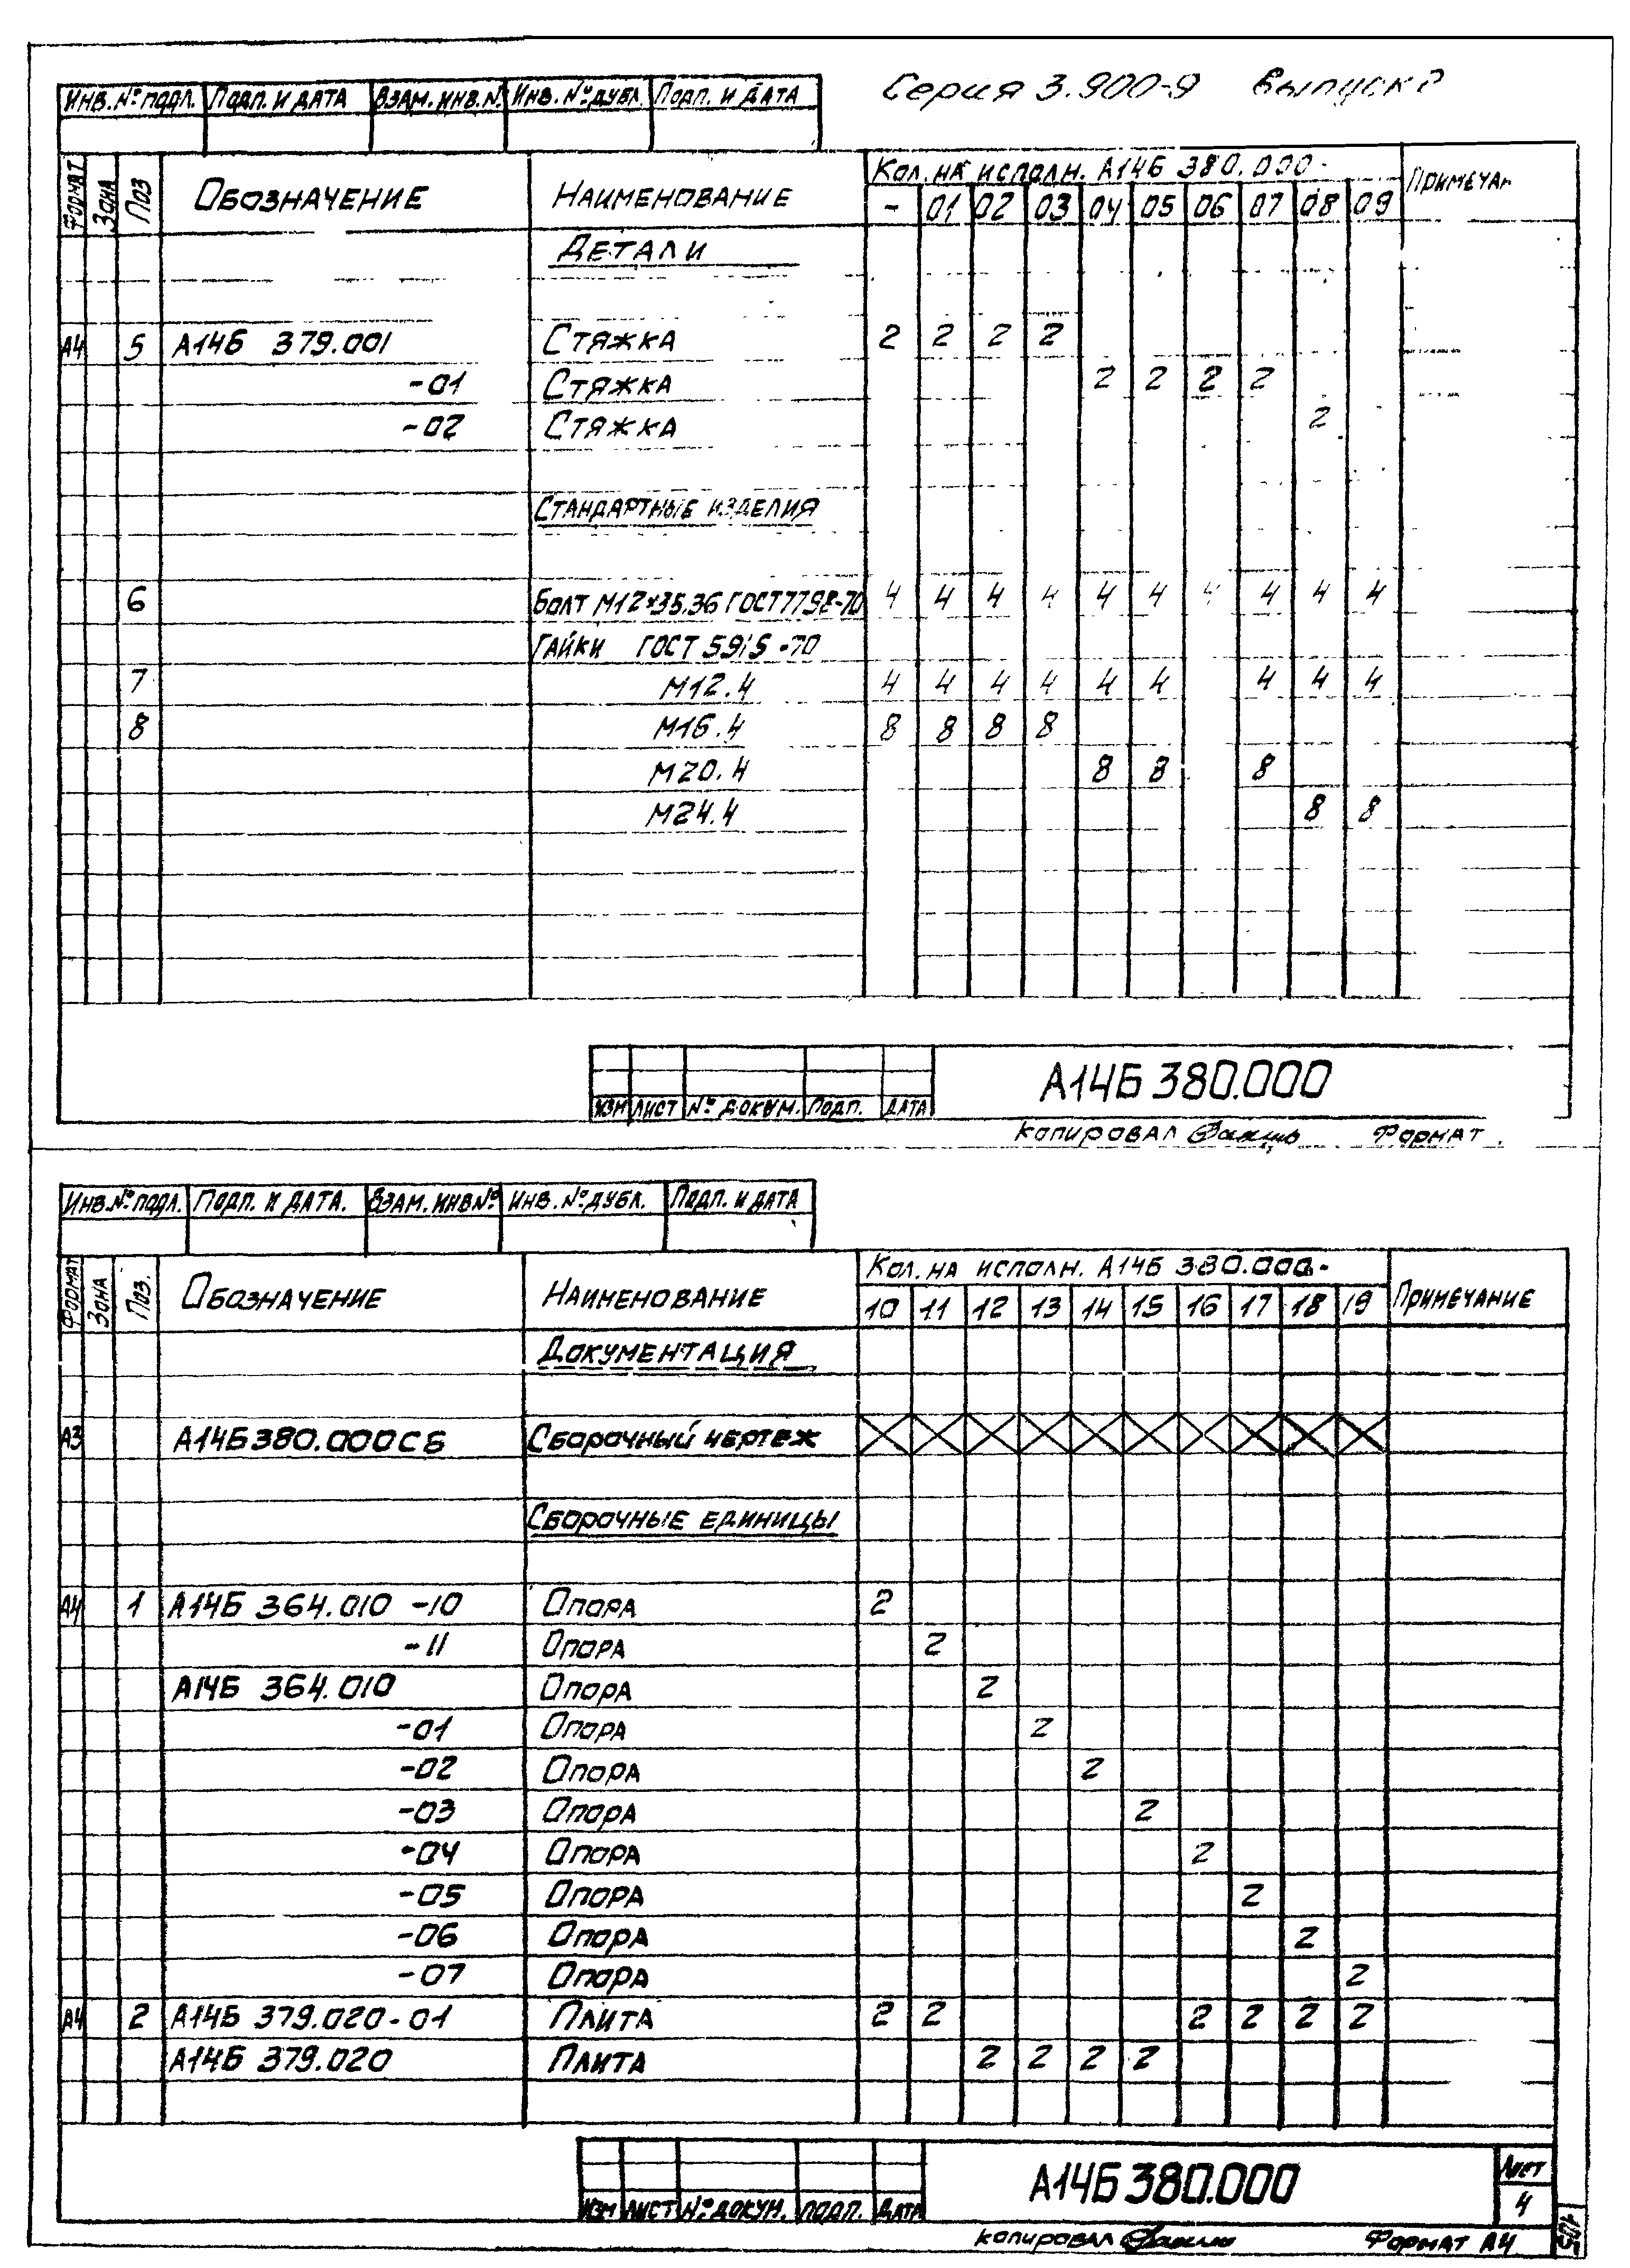 Серия 3.900-9 Выпуск 2
Инв.№подл. Подп. и дата Взам.инв.№ Инв.№дубл. Подп. и дата
Формат Зона Поз Обозначение Наименование Кол.на исполн. А14Б 380.000- Примечан
- 01 02 03 04 05 06 07 08 09
Детали
А4 5 А14Б 379.001 Стяжка 2 2 2 2
-01 Стяжка 2 2 2 2
-02 Стяжка 2
Стандартные изделия
6 Болт М12×35.36 ГОСТ7798-70 4 4 4 4 4 4 4 4 4 4
Гайки ГОСТ 5915-70
7 М12.4 4 4 4 4 4 4 4 4 4
8 М16.4 8 8 8 8
М20.4 8 8 8
М24.4 8 8
А14Б 380.000
Изм Лист № докум. Подп. Дата
Копировал Формат
Инв.№подл. Подп. и дата. Взам.инв№ Инв.№дубл. Подп. и дата
Формат Зона Поз. Обозначение Наименование Кол.на исполн. А14Б 380.000- Примечание
10 11 12 13 14 15 16 17 18 19
Документация
А3 А14Б380.000СБ Сборочный чертеж
Сборочные единицы
А4 1 А14Б 364.010 -10 Опора 2
-11 Опора 2
А14Б 364.010 Опора 2
-01 Опора 2
-02 Опора 2
-03 Опора 2
-04 Опора 2
-05 Опора 2
-06 Опора 2
-07 Опора 2
А4 2 А14Б 379.020-01 Плита 2 2 2 2 2 2
А14Б 379.020 Плита 2 2 2 2
А14Б 380.000 Лист
4
Изм Лист № докум. Подп. Дата
Копировал Формат А4